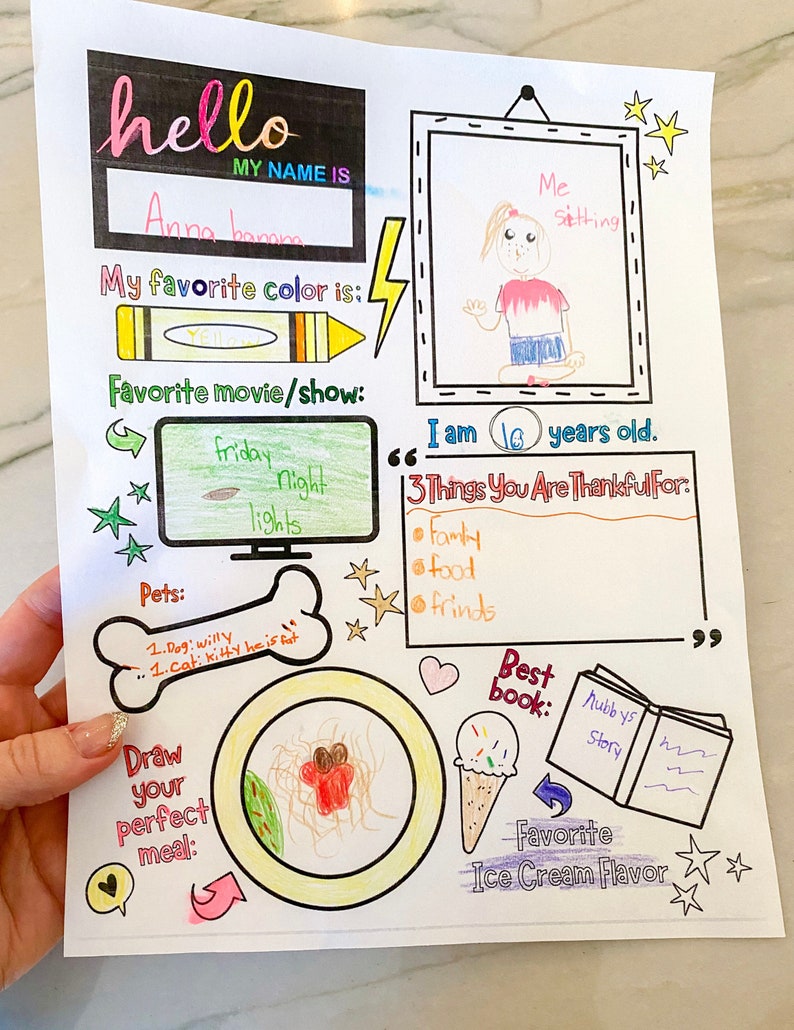 hello
MY NAME IS
Anna banana
My favorite color is:
Yellow
Favorite movie/show:
friday
night
lights
Pets:
1. Dog: willy
1. Cat: kitty he is fat
Draw
your
perfect
meal:
Me
sitting
I am 10 years old.
“
3 Things You Are Thankful For:
Family
food
frinds
”
Best
book:
hubbys
story
Favorite
Ice Cream Flavor